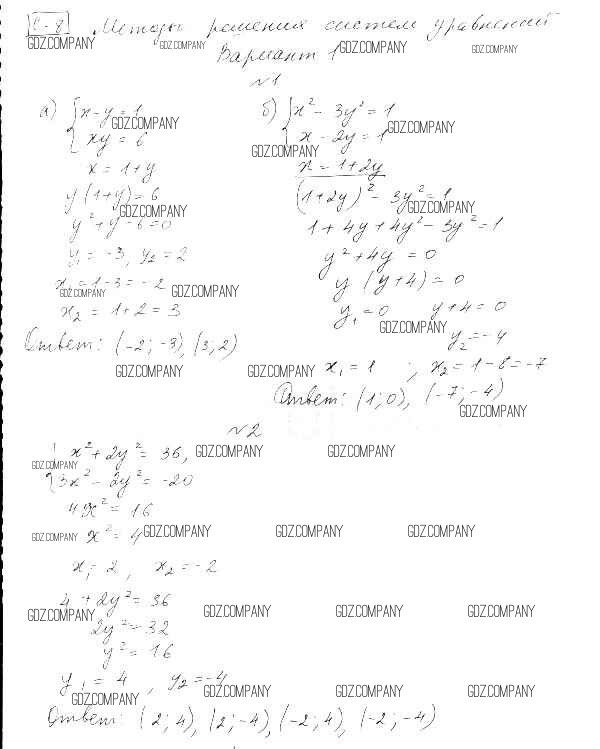 С-8. Методы решения систем уравнений
GDZ.COMPANY GDZ.COMPANY GDZ.COMPANY GDZ.COMPANY
Вариант 1
№1
а) { x - y = 1
GDZ.COMPANY
xy = 6
x = 1 + y
y(1+y) = 6
GDZ.COMPANY
y² + y - 6 = 0
y₁ = -3, y₂ = 2
x₁ = 1 - 3 = -2
GDZ.COMPANY GDZ.COMPANY
x₂ = 1 + 2 = 3
Ответ: (-2; -3), (3; 2)
GDZ.COMPANY
б) { x² - 3y² = 1
GDZ.COMPANY
x - 2y = 1
GDZ.COMPANY
x = 1 + 2y
(1+2y)² - 3y² = 1
GDZ.COMPANY
1 + 4y + 4y² - 3y² = 1
y² + 4y = 0
y (y+4) = 0
y₁ = 0 y + 4 = 0
GDZ.COMPANY
y₂ = -4
GDZ.COMPANY x₁ = 1 ; x₂ = 1 - 8 = -7
Ответ: (1; 0), (-7; -4)
GDZ.COMPANY
№2
{ x² + 2y² = 36, GDZ.COMPANY GDZ.COMPANY
GDZ.COMPANY
3x² - 2y² = -20
4x² = 16
GDZ.COMPANY x² = 4 GDZ.COMPANY GDZ.COMPANY GDZ.COMPANY
x₁ = 2, x₂ = -2
4 + 2y² = 36
GDZ.COMPANY GDZ.COMPANY GDZ.COMPANY GDZ.COMPANY
2y² = 32
y² = 16
y₁ = 4, y₂ = -4
GDZ.COMPANY GDZ.COMPANY GDZ.COMPANY GDZ.COMPANY
Ответ: (2; 4), (2; -4), (-2; 4), (-2; -4)